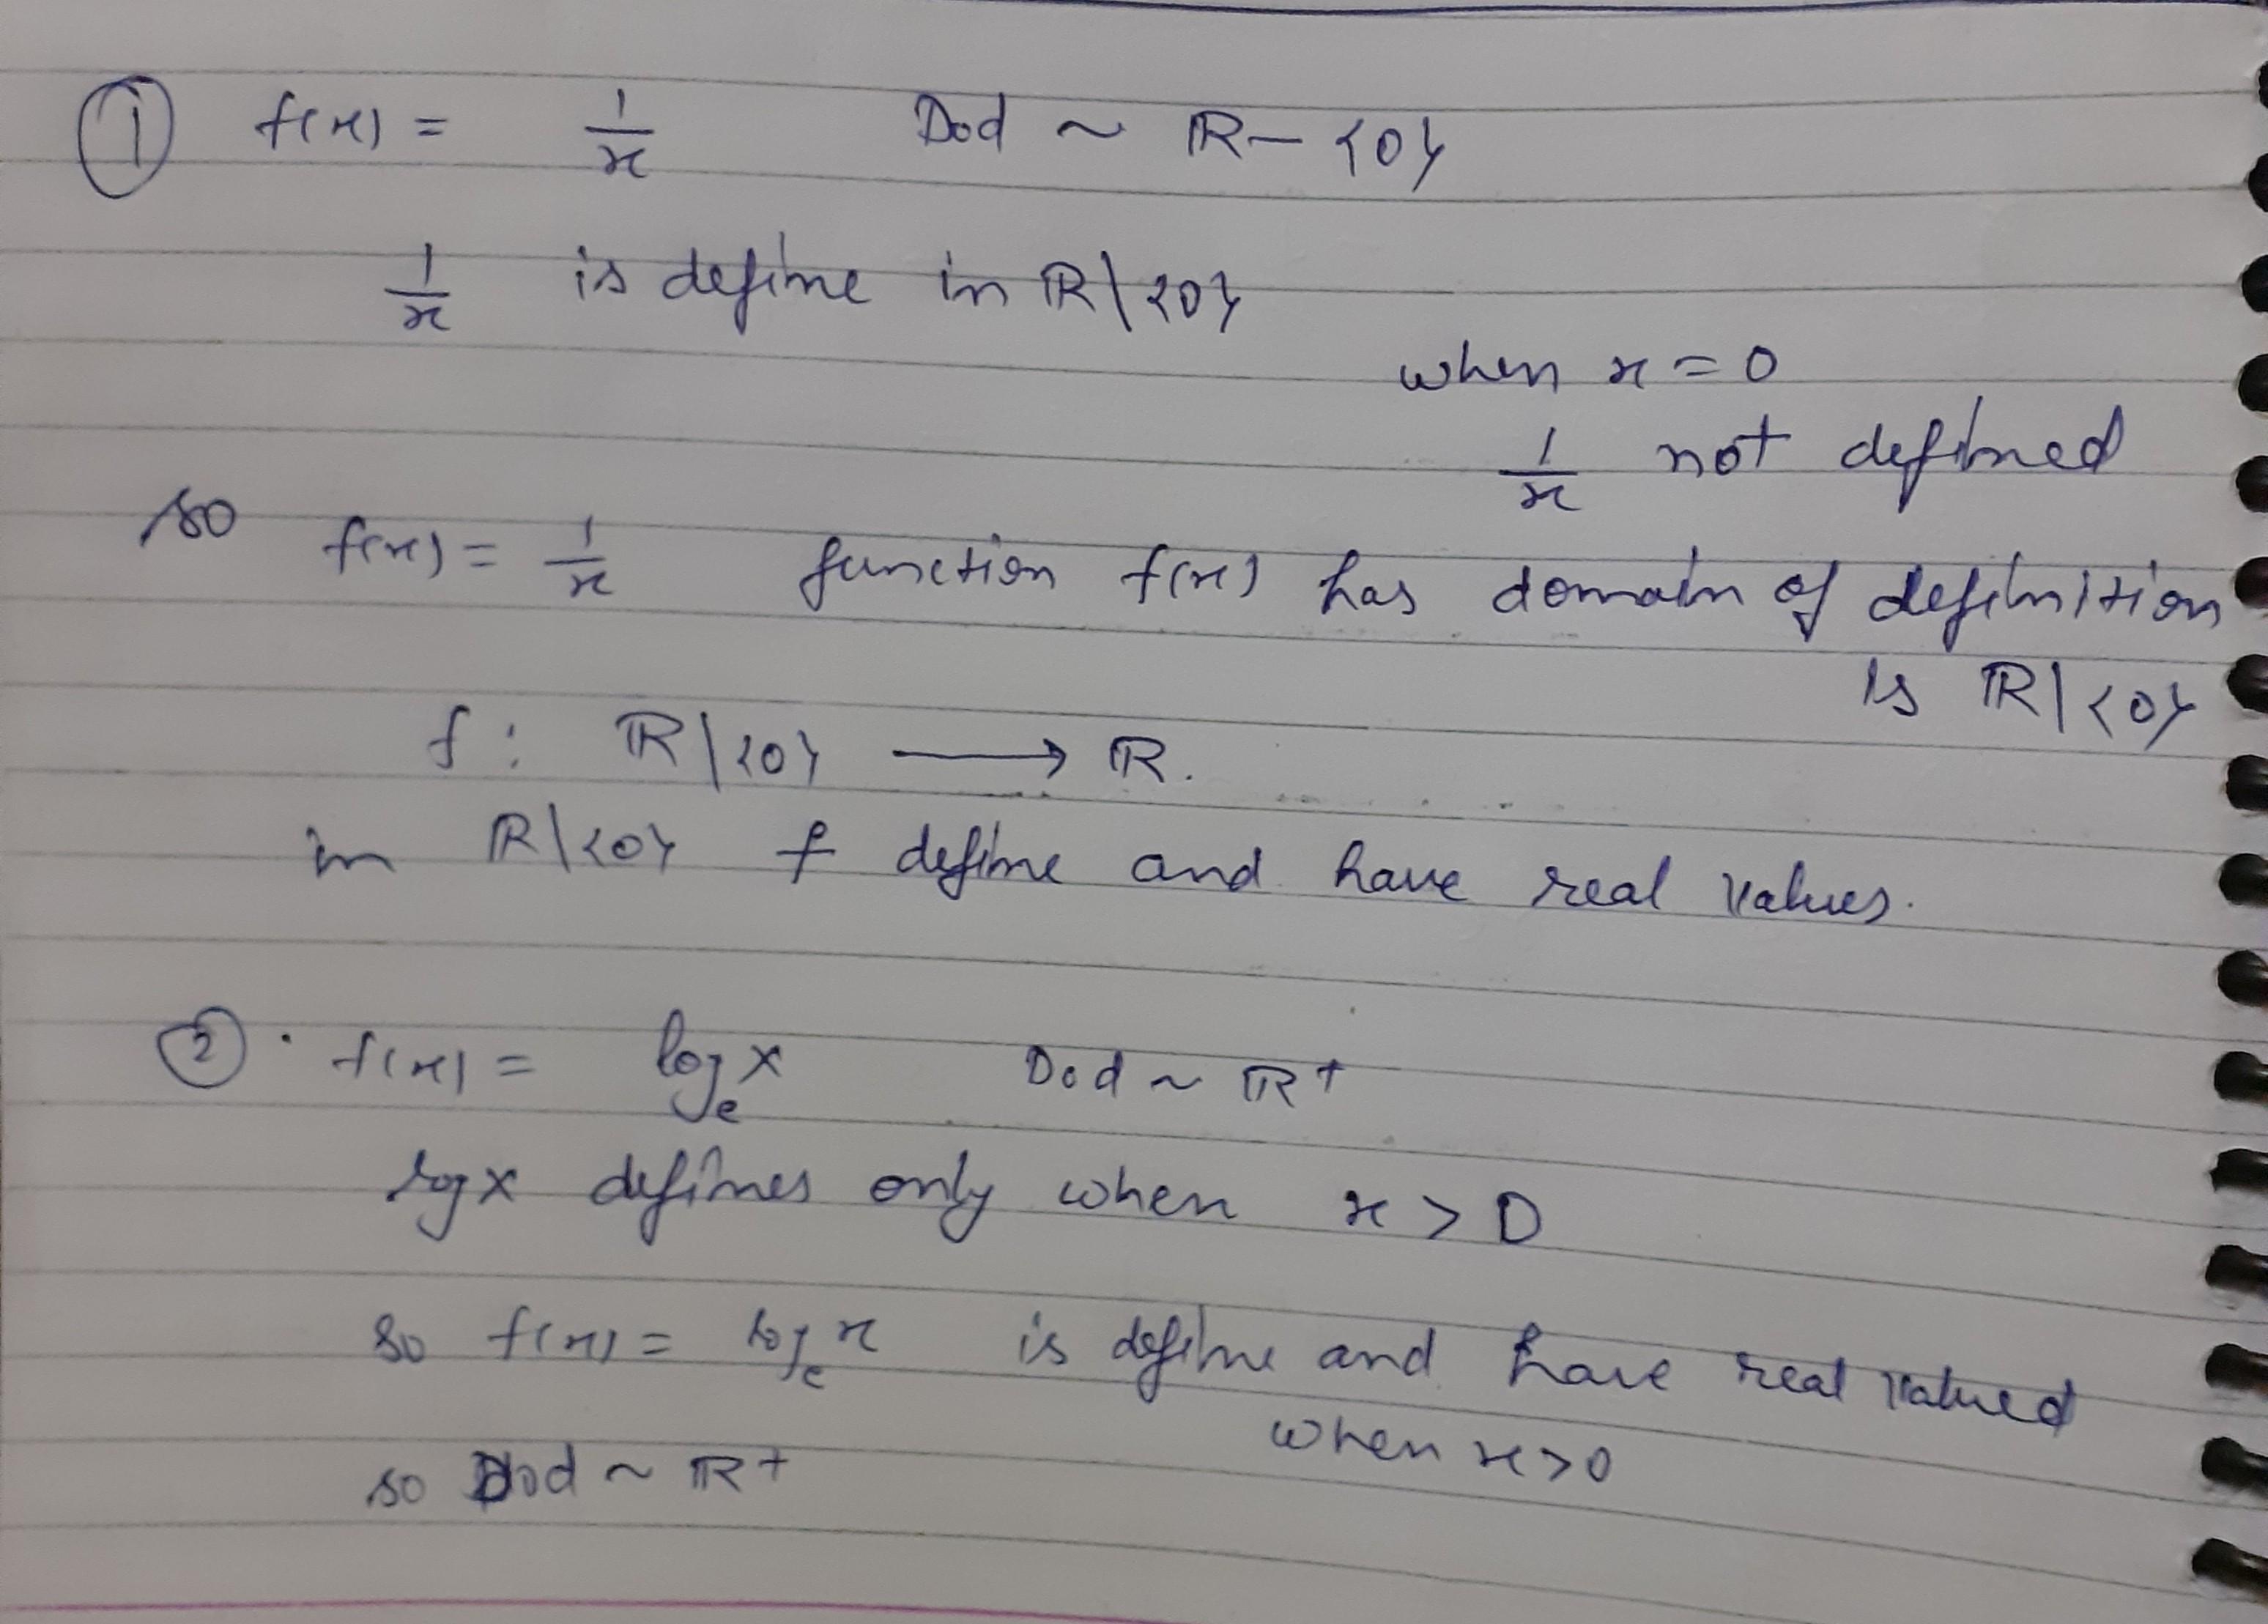 ① f(x) = 1/x Dod ~ ℝ - {0}
1/x is define in ℝ\{0}
when x = 0
1/x not defined
so f(x) = 1/x function f(x) has domain of definition
is ℝ\{0}
f : ℝ\{0} ⟶ ℝ.
in ℝ\{0} f define and have real values.
② . f(x) = logₑx Dod ~ ℝ⁺
log x defines only when x > 0
so f(x) = logₑx is define and have real valued
when x>0
so Dod ~ ℝ⁺